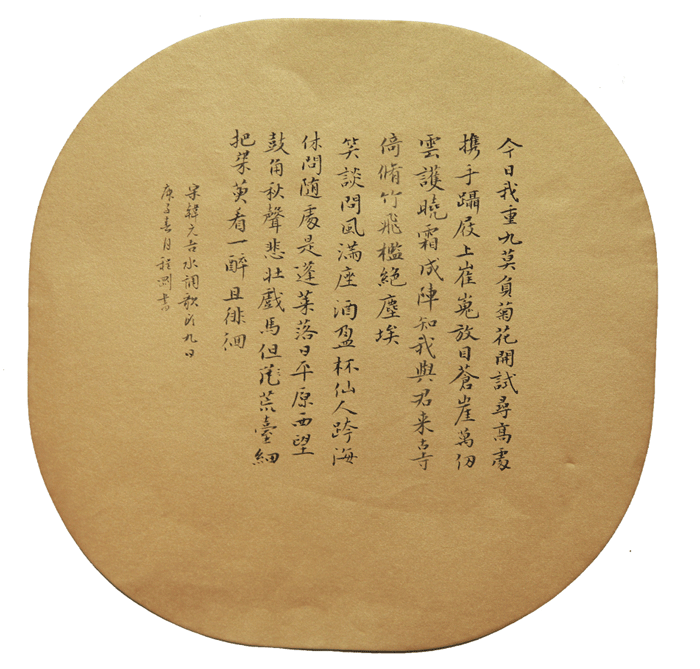 今日我重九莫負菊花開試尋高處
携手躡屐上崔嵬放目蒼崖萬仞
雲護曉霜成陣知我與君来古寺
倚脩竹飛檻絕塵埃
笑談間風滿座酒盈杯仙人跨海
休問隨處是蓬萊落日平原西望
鼓角秋聲悲壯戲馬但荒臺細
把茱萸看一醉且徘徊
宋韓元吉水調歌頭九日
庚子春月程書